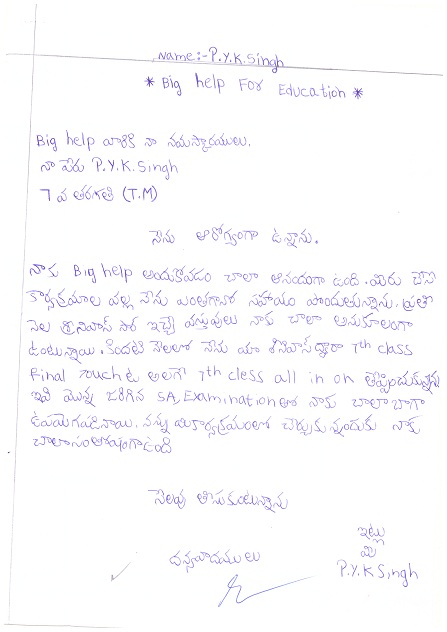 Name:- P.Y.K.Singh
* Big help For Education *
Big help వారికి నా నమస్కారములు.
నా పేరు P.Y.K.Singh
7 వ తరగతి (T.M)
నేను ఆరోగ్యంగా ఉన్నాను.
నాకు Big help అందుకోవడం చాలా ఆనందుగా ఉంది. మీరు చేసే
కార్యక్రమాల వల్ల నేను ఎంతగానో సహాయం పొందుతున్నాను. ప్రతి
నెల శ్రీనివాస్ సార్ ఇచ్చే వస్తువులు నాకు చాలా అనుకూలంగా
ఉంటున్నాయి. కిందటి నెలలో నేను మా శ్రీనివాస్ ద్వారా 7th class
Final touch & అలాగే 7th class all in on తెప్పించుకున్నాను
ఇవి మొన్న జరిగిన SA, Examination లో నాకు చాలా బాగా
ఉపయెగపడినాయి. నన్ను మీ కార్యక్రమంలో చేర్చుకున్నందుకు నాకు
చాలా సంతోషంగా ఉంది
సెలవు తీసుకుంటున్నాను
ఇట్లు
మీ
ధన్యవాదములు
P.Y.K Singh